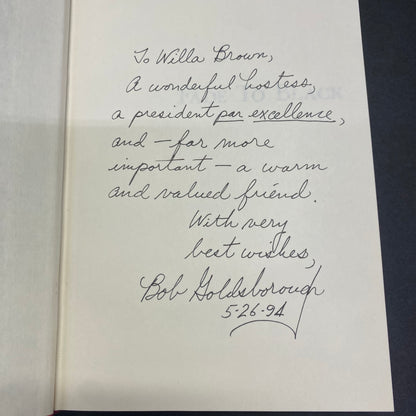 To Willa Brown,
A wonderful hostess,
a president par excellence,
and — far more
important — a warm
and valued friend.
With very
best wishes,
Bob Goldsborough
5-26-94